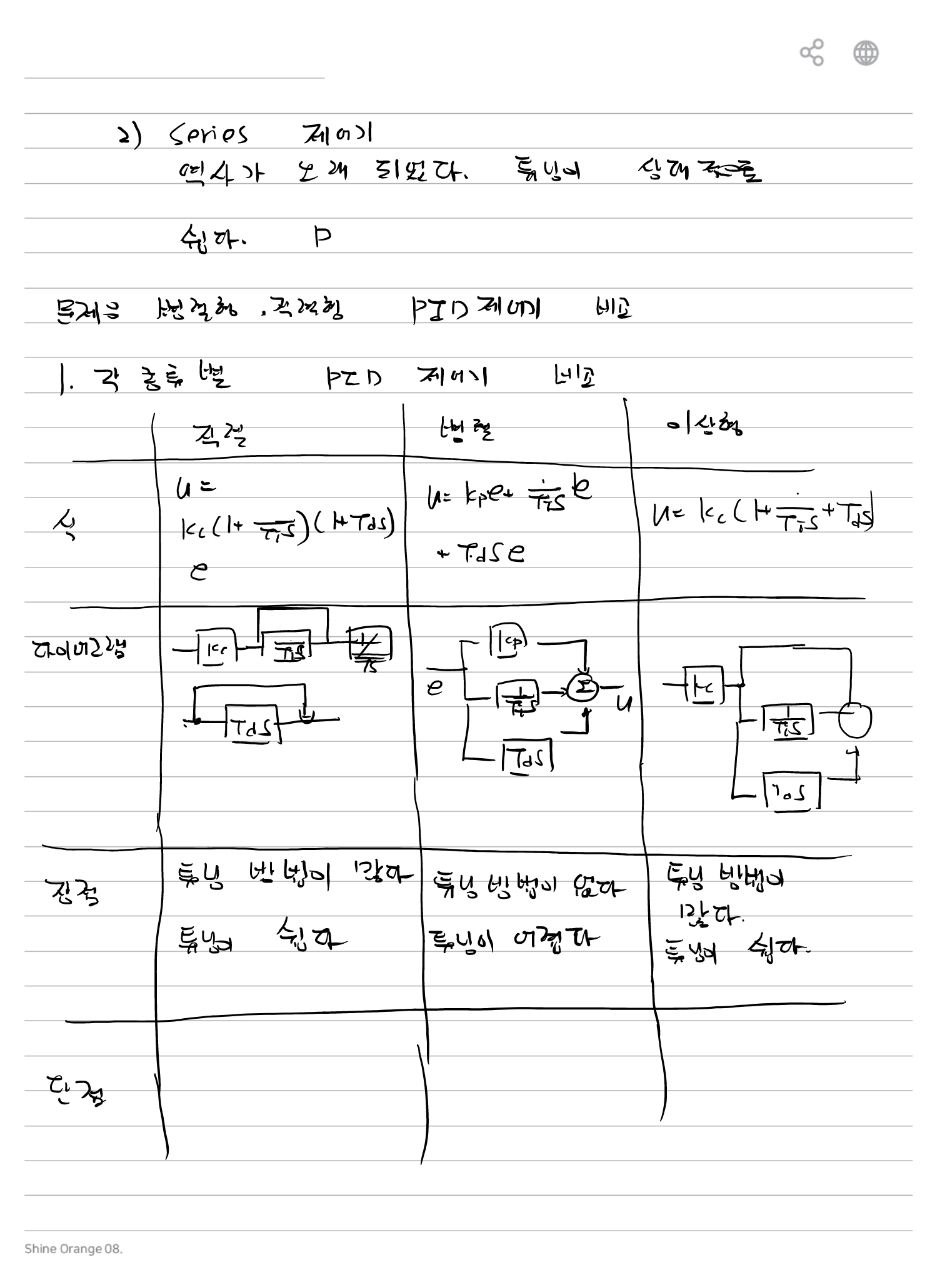 2) Series 제어기
역사가 오래 되었다. 튜닝이 상대적으로
쉽다. P
문제응 병렬형, 직렬형 PID 제어기 비교
1. 각 종류별 PID 제어기 비교
직렬 병렬 이상형
식
u =
Kc(1+ 1/TiS)(1+Tds)
e
u= Kpe+ 1/TiS e
+ TdSe
u= Kc(1+ 1/TiS +TdS)
다이어그램
Kc 1/TiS 1/TS
TdS
e Kp 1/TiS TdS Σ u
Kc 1/TiS TdS
장점
튜닝 방법이 많다
튜닝이 쉽다
튜닝 방법이 없다
튜닝이 어렵다
튜닝 방법이
많다.
튜닝이 쉽다.
단점
Shine Orange 08.